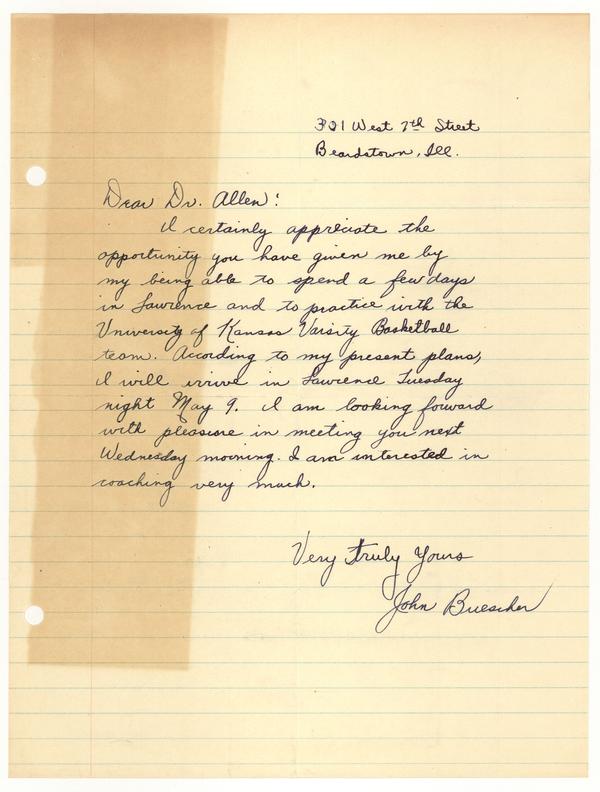 321 West 7th Street
Beardstown, Ill.
Dear Dr. Allen:
I certainly appreciate the
opportunity you have given me by
my being able to spend a few days
in Lawrence and to practice with the
University of Kansas Varsity Basketball
team. Acording to my present plans,
I will arrive in Lawrence Tuesday
night May 9. I am looking forward
with pleasure in meeting you next
Wednesday morning. I am interested in
coaching very much.
Very Truly Yours
John Buescher